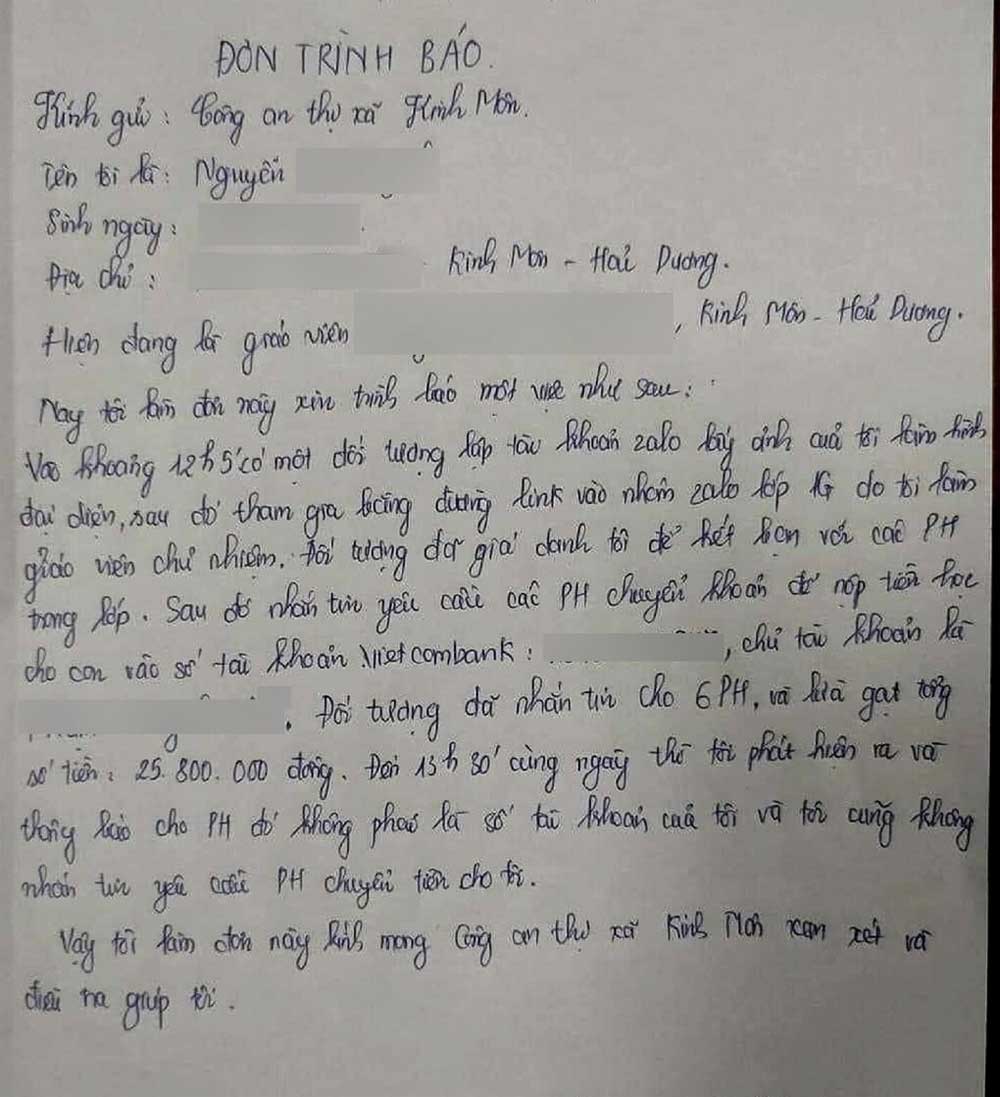 ĐƠN TRÌNH BÁO.
Kính gửi: Công an thị xã Kinh Môn.
Tên tôi là: Nguyễn
Sinh ngày:
Địa chỉ: Kinh Môn - Hải Dương.
Hiện đang là giáo viên , Kinh Môn - Hải Dương.
Nay tôi làm đơn này xin trình báo một việc như sau:
Vào khoảng 12h5' có một đối tượng lập tài khoản zalo lấy ảnh của tôi làm hình
đại diện, sau đó tham gia bằng đường link vào nhóm zalo lớp 1G do tôi làm
giáo viên chủ nhiệm. Đối tượng đã giả danh tôi để kết bạn với các PH
trong lớp. Sau đó nhắn tin yêu cầu các PH chuyển khoản để nộp tiền học
cho con vào số tài khoản Vietcombank: , chủ tài khoản là
. Đối tượng đã nhắn tin cho 6 PH, và lừa gạt tổng
số tiền: 25.800.000 đồng. Đến 13h30' cùng ngày thì tôi phát hiện ra và
thông báo cho PH đó không phải là số tài khoản của tôi và tôi cũng không
nhắn tin yêu cầu PH chuyển tiền cho tôi.
Vậy tôi làm đơn này kính mong Công an thị xã Kinh Môn xem xét và
điều tra giúp tôi.